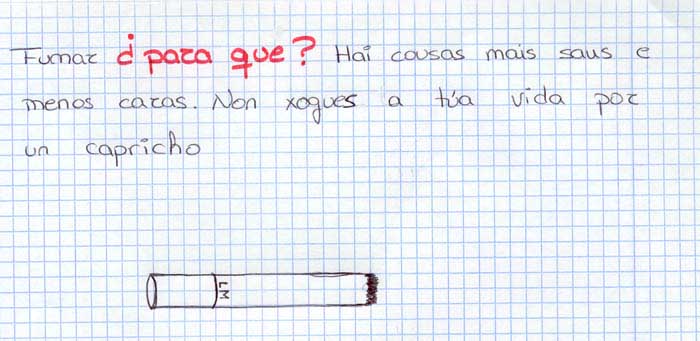 Fumar ¿para que? Hai cousas mais saus e
menos caras. Non xogues a túa vida por
un capricho
LM